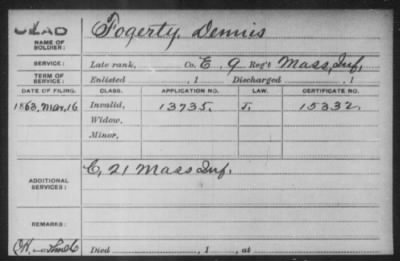 DEAD
NAME OF SOLDIER: Fogerty, Dennis
SERVICE: Late rank, Co. E, 9 Reg't Mass, Inf,
TERM OF SERVICE: Enlisted , 1 Discharged , 1
DATE OF FILING. CLASS. APPLICATION NO. LAW. CERTIFICATE NO.
1863, Mar, 16 Invalid, 13735. 15332.
Widow,
Minor,
ADDITIONAL SERVICES: C, 21 Mass Inf.
REMARKS:
Died , 1 , at